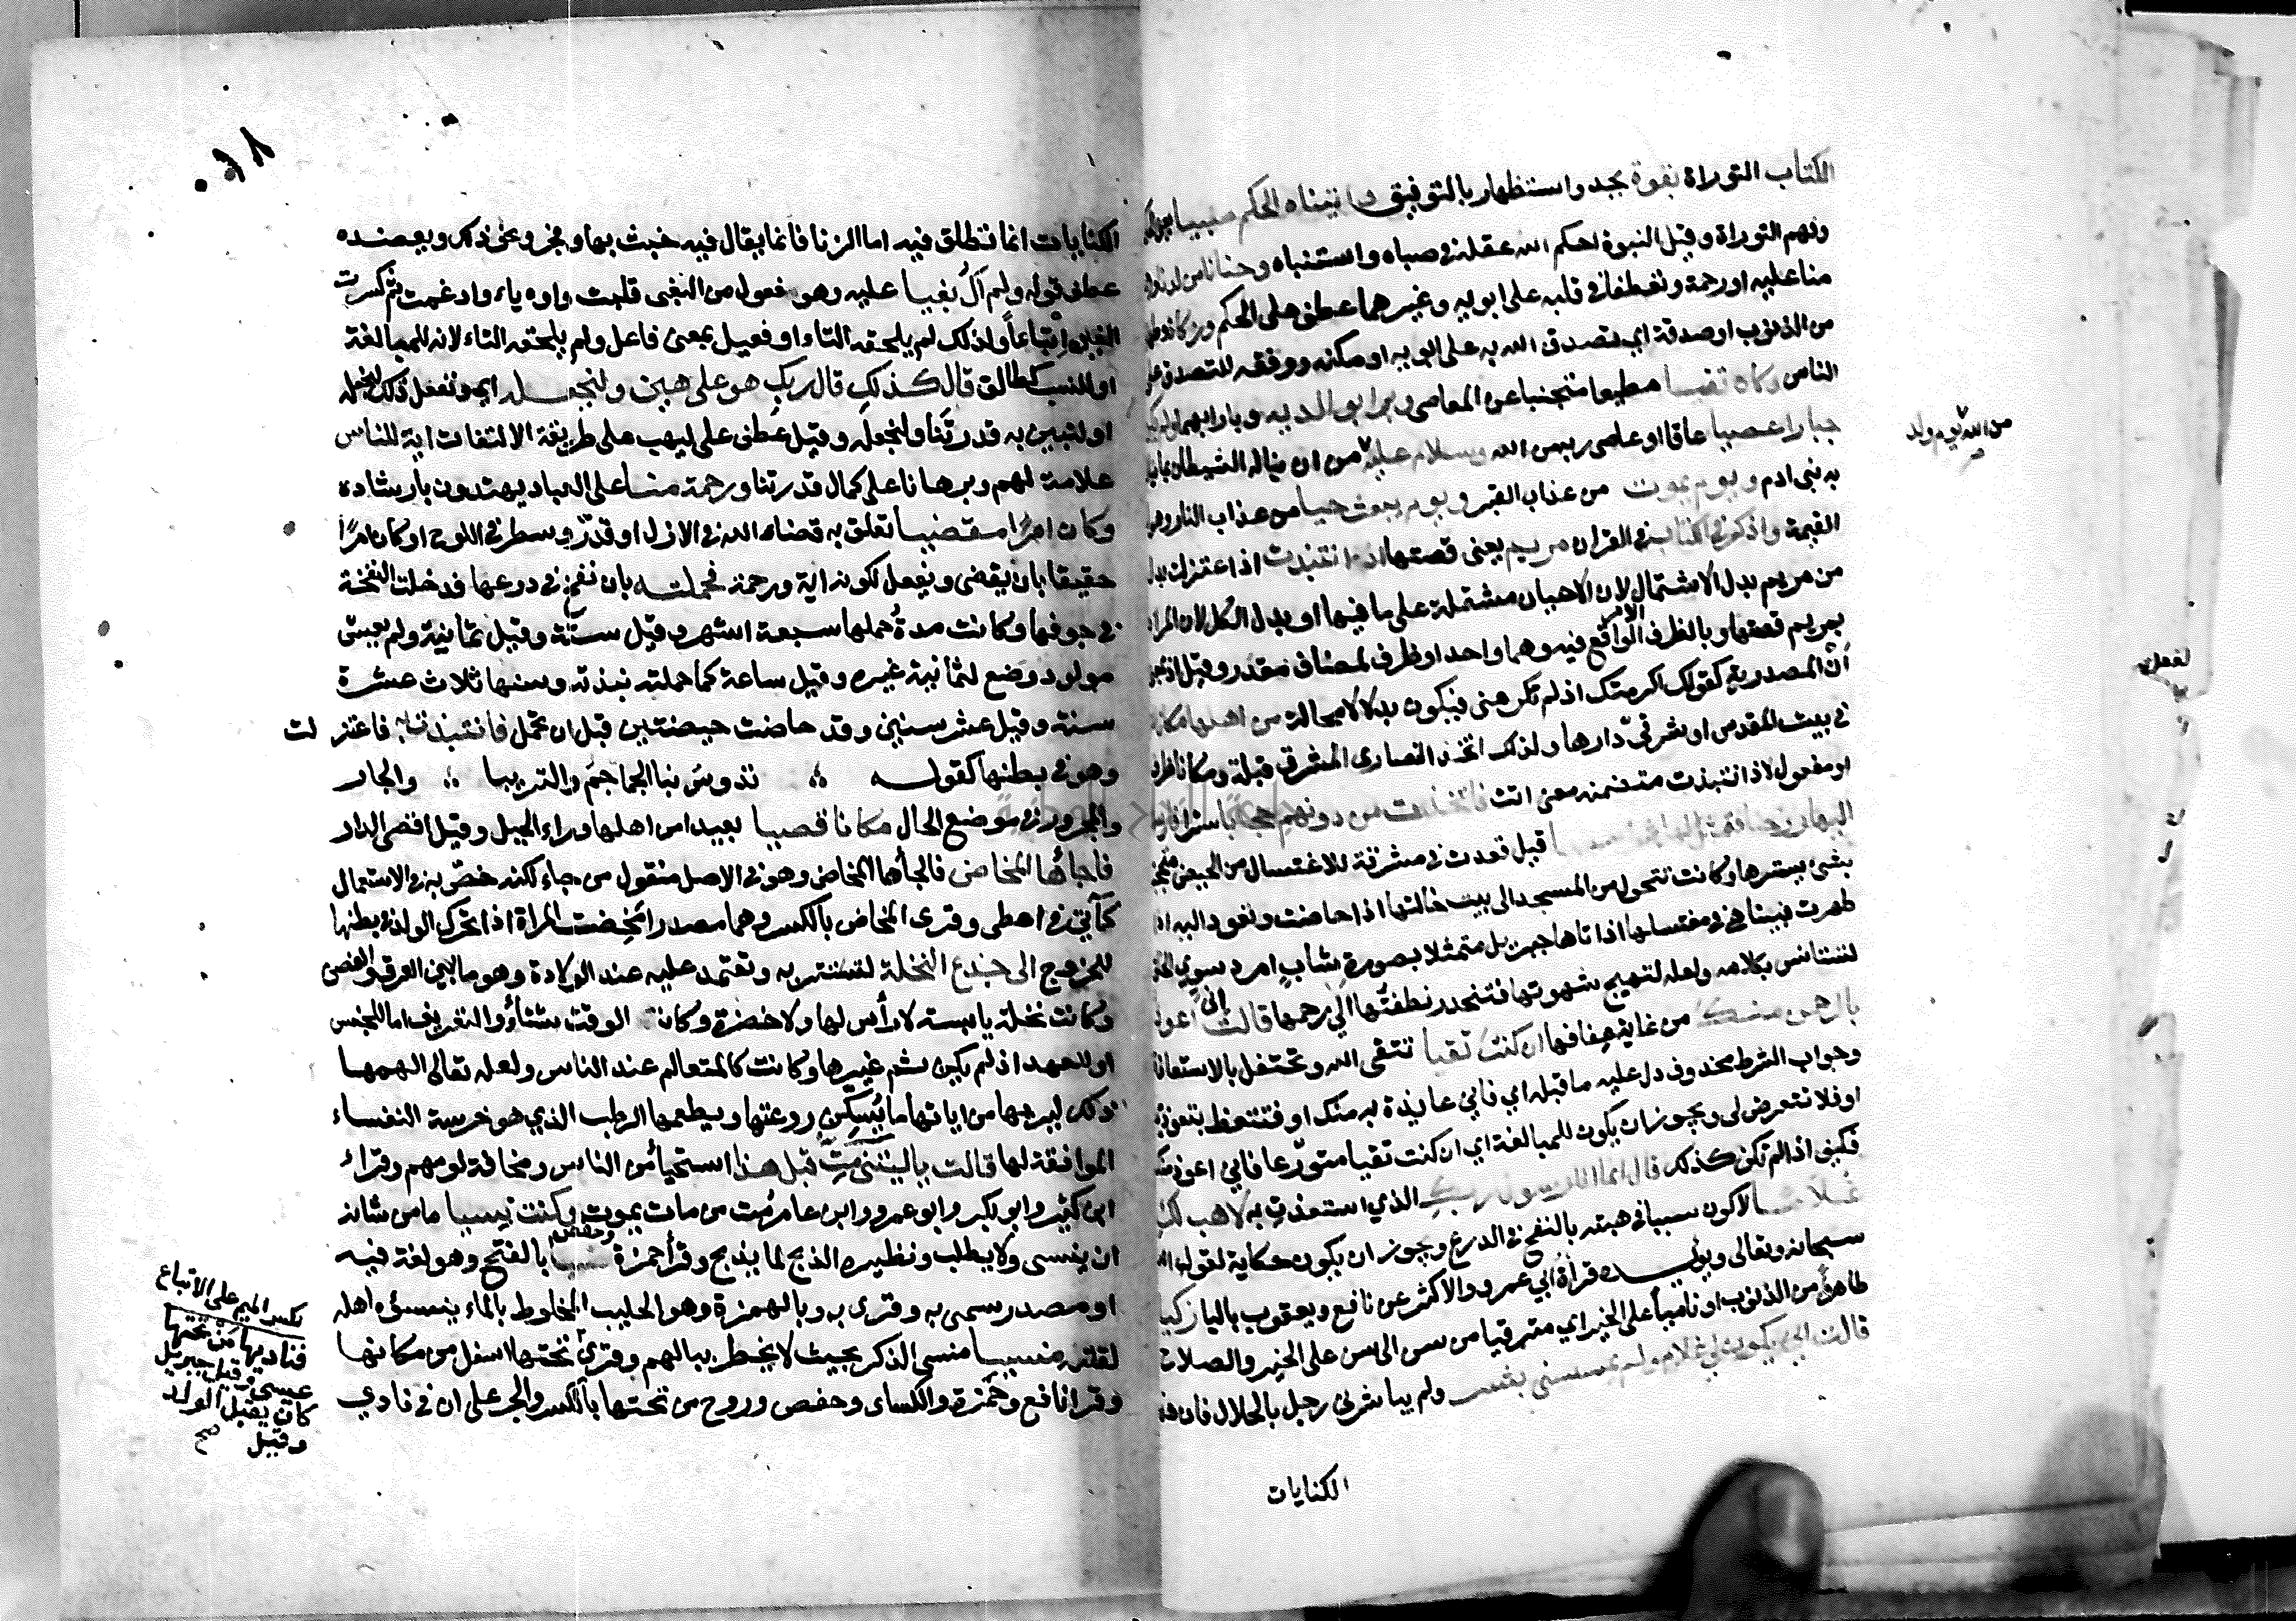 الكتاب التوراة بقوة بجد واستظهار بالتوفيق واتيناه الحكم صبيا
وفهم التوراة وقيل النبوة احكم الله عقله في صباه واستنباه وحنانا من لدنا
منا عليه او رحمة وتعطفا في قلبه على ابويه وغيرهما عطف على الحكم وزكاة
من الذنوب او صدقة اي تصدق الله به على ابويه او مكنه ووفقه للتصدق على
الناس وكان تقيا مطيعا متجنبا عن المعاصي وبرا بوالديه وبارا بهما ولم يكن
جبارا عصيا عاقا او عاصي ربه من الله وسلام عليه من ان يناله الشيطان بما
من الله يوم ولد
صح
به بني ادم ويوم يموت من عذاب القبر ويوم يبعث حيا من عذاب النار وهول
القيمة واذكر في الكتاب في القران مريم يعني قصتها اذ انتبذت اذ اعتزلت بدل
من مريم بدل الاشتمال لان الاحيان مشتملة على ما فيها او بدل الكل لان المراد
بمريم قصتها وبالظرف الامر الواقع فيه وهما واحد او ظرف لمضاف مقدر وقيل اذ
أنْ المصدرية كقولك اكرمتك اذ لم تكرمني فيكون بدلا لا محالة من اهلها مكانا
في بيت المقدس او شرقيّ دارها ولذلك اتخذ النصارى المشرق قبلة ومكانا ظرف
او مفعول لان انتبذت متضمنه معنى اتت فاتخذت من دونهم حجابا سترا
اليها روحنا فتمثل لها بشرا سويا قيل قعدت في مشرقة للاغتسال من الحيض
بشيء يسترها وكانت تتحول من المسجد الى بيت خالتها اذا حاضت وتعود اليه اذا
طهرت فبينا هي في مغتسلها اذ اتاها جبريل متمثلا بصورة شاب امرد سوي الخلق
لتستانس بكلامه ولعله لتهييج شهوتها فتنحدر نطفتها الى رحمها قالت اني اعوذ
بالرحمن منك من غاية عفافها ان كنت تقيا تتقي الله وتحتفل بالاستعاذة
وجواب الشرط محذوف دل عليه ما قبله اي فاني عايذة به منك او فتتعظ بتعوذي
او فلا تتعرض لي ويجوز ان يكون للمبالغة اي ان كنت تقيا متورّعا فاني اعوذ منك
فكيف اذا لم تكن كذلك قال انما انا رسول ربك الذي استعذتِ به لاهب لك
غلاما لاكون سببا في هبته بالنفخ في الدرع ويجوز ان يكون حكاية لقول الله
سبحانه وتعالى ويؤيده قرأة ابي عمرو والاكثر عن نافع ويعقوب باليا زكيا
طاهرا من الذنوب او ناميا على الخير اي مترقيا من سن الى سن على الخير والصلاح
قالت اني يكون لي غلام ولم يمسسني بشر ولم يباشرني رجل بالحلال فان هذه
الكنايات
الكنايات انما تطلق فيه اما الزنا فانما يقال فيه خبث بها وفجر ونحو ذلك ويعضده
عطف قوله ولم اَكُ بغيا عليه وهو فعول من البغي قلبت واوه ياء وادغمت ثم كسرت
الغين اِتباعاً ولذلك لم يلحقه التا او فعيل بمعنى فاعل ولم يلحقه التاء لانه للمبالغة
او للنسب كطالق قال كذلك قال ربك هو على هين ولنجعله اي ونفعل ذلك لنجعله
او لنبين به قدرتنا ولنجعله وقيل عطف على ليهب على طريقة الالتفات اية للناس
علامة لهم وبرهانا على كمال قدرتنا ورحمة منا على العباد يهتدون بارشاده
وكان امرًا مقضيا تعلق به قضاء الله في الازل او قدّر وسطر في اللوح او كان امرًا
حقيقا بان يقضى ويفعل لكونه اية ورحمة فحملته بان نفخ في درعها فدخلت النفخة
في جوفها وكانت مدة حملها سبعة اشهر وقيل ستّة وقيل ثمانية ولم يعش
مولود وضع لثمانية غيره وقيل ساعة كما حملته نبذته وسنها ثلاث عشرة
سنة وقيل عشر سنين وقد حاضت حيضتين قبل ان تحمل فانتبذت به فاعتزلت
وهو في بطنها كقوله تدوس بنا الجماجم والتريبا والجار
والمجرور في موضع الحال مكانا قصيا بعيدا من اهلها وراء الجبل وقيل اقصى الدار
فاجأها المخاض فالجأها المخاض وهو في الاصل منقول من جاء لكنه خصّ به في الاستعمال
كآتي في اعطى وقرى المخاض بالكسر وهما مصدر مَخِضت المراة اذا تحرك الولد في بطنها
للخروج الى جذع النخلة لتستتر به وتعتمد عليه عند الولادة وهو ما بين العرق والغصن
وكانت نخلة يابسة لا رأس لها ولا خضرة وكان الوقت شتاءً والتعريف اما للجنس
او للعهد اذ لم يكن ثم غيرها وكانت كالمتعالم عند الناس ولعله تعالى الهمها
ذلك ليريها من اياتها ما يُسكِّن روعتها ويطعمها الرطب الذي هو خرسة النفساء
الموافقة لها قالت ياليتني مِتّ قبل هذا استحياً من الناس ومخافة لومهم وقراء
ابن كثير وابو بكر وابو عمرو وابن عامر مُت من مات يموت وكنت نسيا ما من شانه
ان ينسى ولا يطلب ونظيره الذبح لما يذبح وقرأ حمزة وحفص نسيا بالفتح وهو لغة فيه
او مصدر سمى به وقرى به وبالهمزة وهو الحليب المخلوط بالماء ينسؤه اهله
لقلته منسيا منسي الذكر بحيث لا يخطر ببالهم وقرئ تحتها اسفل من مكانها
وقرا نافع وحمزة والكساى وحفص وروح من تحتها بالكسر والجر على ان في نادي
بكسر الميم على الاتباع
فناديها مَن تحتها
عيسى وقيل جبريل
كان يقبل الولد
وقيل صح